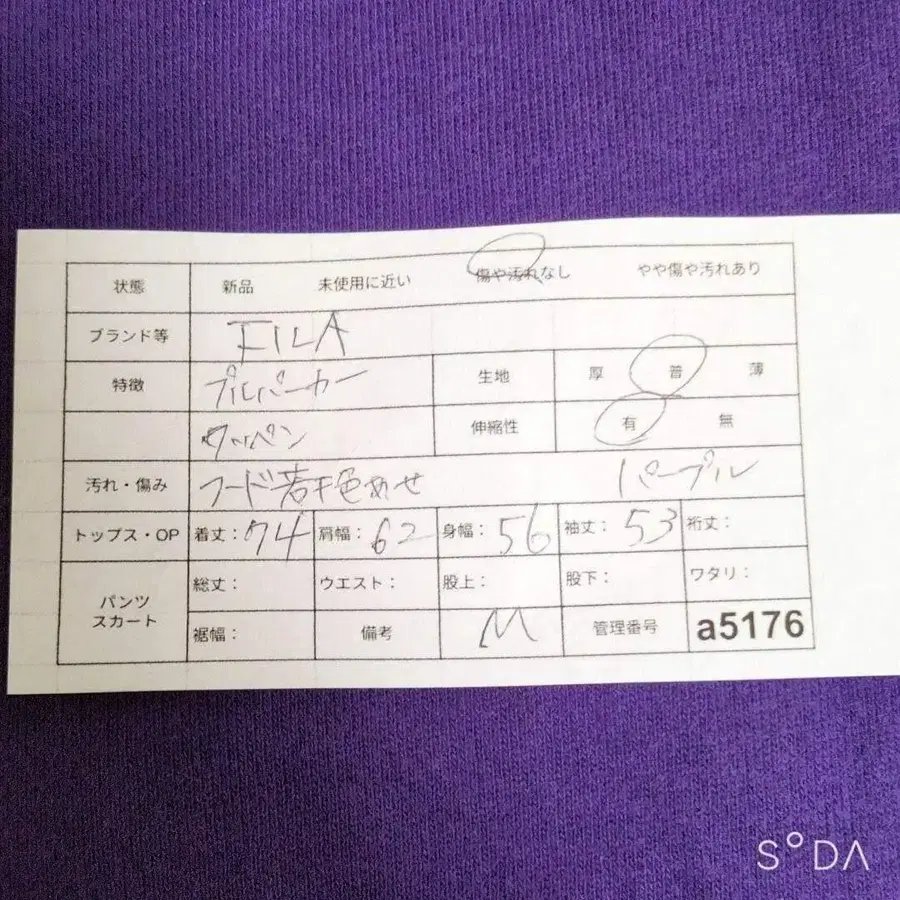 状態 新品 未使用に近い 傷や汚れなし やや傷や汚れあり
ブランド等 FILA
特徴 プルパーカー 生地 厚 普 薄
ワッペン 伸縮性 有 無
汚れ・傷み フード若干色あせ パープル
トップス・OP 着丈：74 肩幅：62 身幅：56 袖丈：53 裄丈：
パンツ スカート 総丈： ウエスト： 股上： 股下： ワタリ：
裾幅： 備考 M 管理番号 a5176
SODA